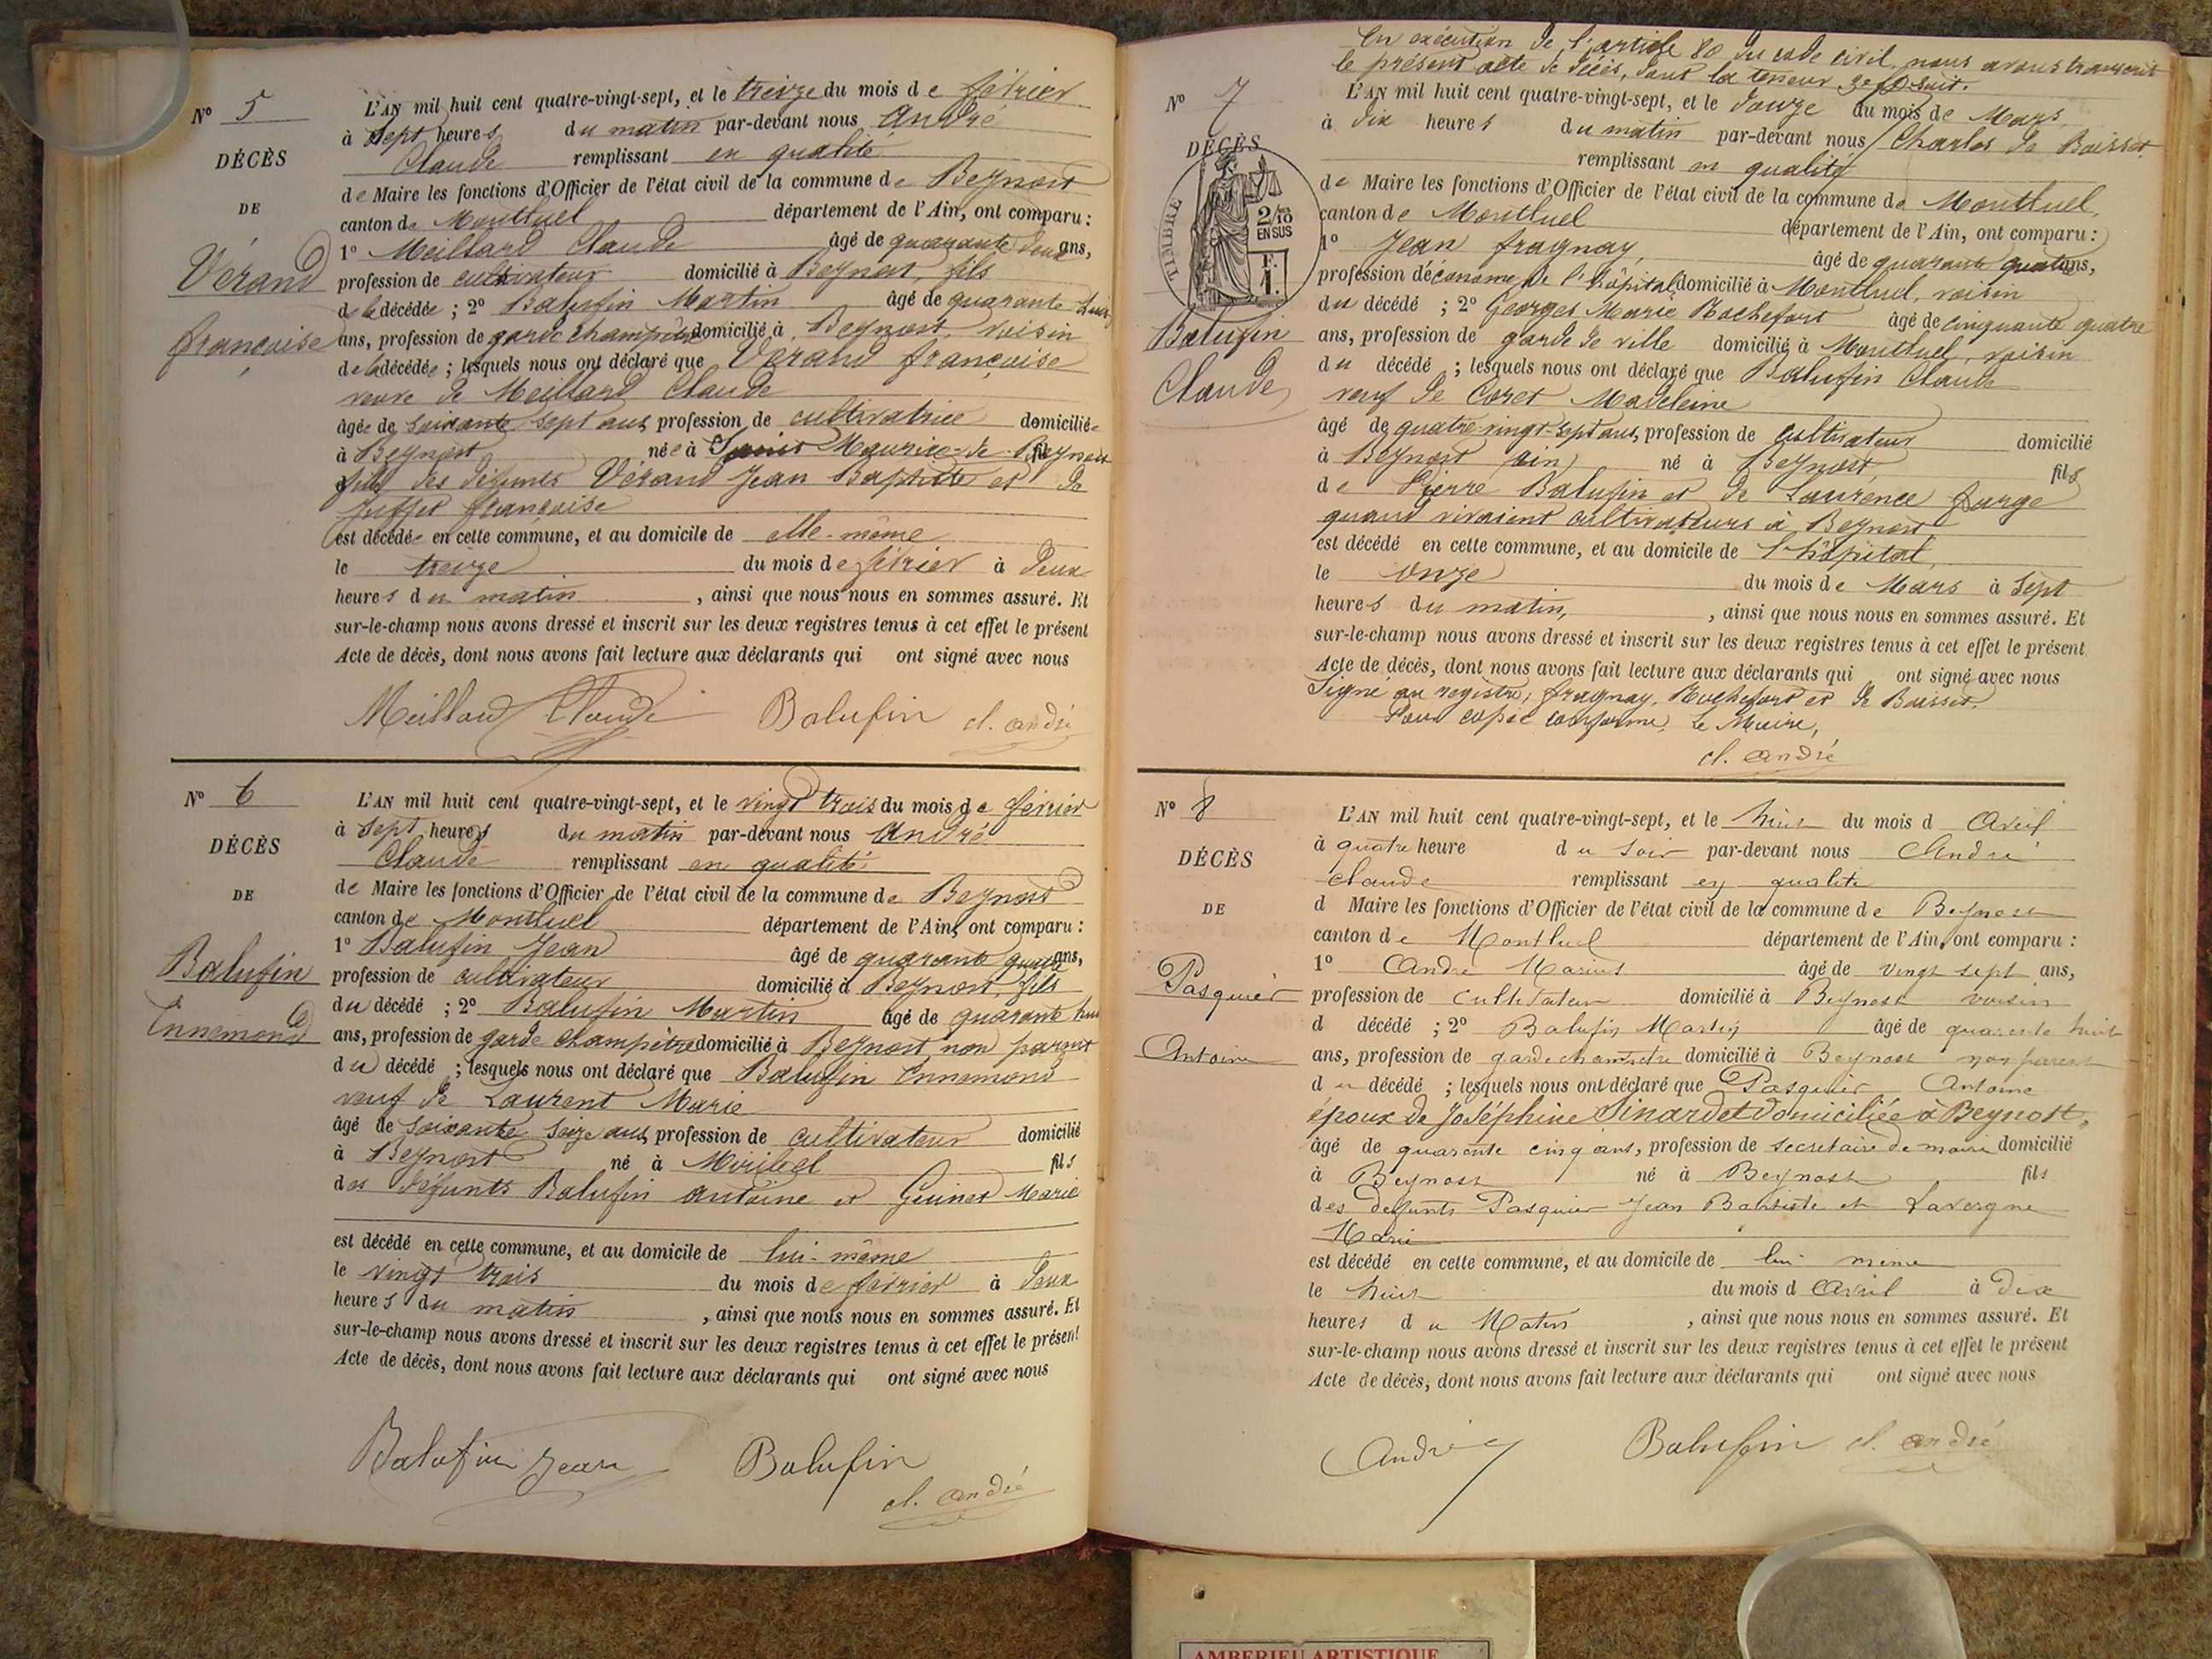 N° 5
DÉCÈS
DE
Vérand
françoise
L'AN mil huit cent quatre-vingt-sept, et le treize du mois de février
à sept heures du matin par-devant nous André
Claude remplissant en qualité
de Maire les fonctions d'Officier de l'état civil de la commune de Beynost
canton de Montluel département de l'Ain, ont comparu :
1° Meillard Claude âgé de quarante deux ans,
profession de cultivateur domicilié à Beynost, fils
de la décédée ; 2° Balufin Martin âgé de quarante huit
ans, profession de garde champêtre domicilié à Beynost, voisin
de la décédée ; lesquels nous ont déclaré que Vérand françoise
veuve de Meillard Claude
âgée de soixante sept ans, profession de cultivatrice domiciliée
à Beynost née à Saint Maurice-de-Beynost
fille des défunts Vérand Jean Baptiste et de
Juffet françoise
est décédée en cette commune, et au domicile de elle-même
le treize du mois de février à deux
heures du matin , ainsi que nous nous en sommes assuré. Et
sur-le-champ nous avons dressé et inscrit sur les deux registres tenus à cet effet le présent
Acte de décès, dont nous avons fait lecture aux déclarants qui ont signé avec nous
Meillard Claude Balufin cl. andré
N° 6
DÉCÈS
DE
Balufin
Ennemond
L'AN mil huit cent quatre-vingt-sept, et le vingt trois du mois de février
à sept heures du matin par-devant nous André
Claude remplissant en qualité
de Maire les fonctions d'Officier de l'état civil de la commune de Beynost
canton de Montluel département de l'Ain, ont comparu :
1° Balufin Jean âgé de quarante quatre ans,
profession de cultivateur domicilié à Beynost, fils
du décédé ; 2° Balufin Martin âgé de quarante huit
ans, profession de garde champêtre domicilié à Beynost, non parent
du décédé ; lesquels nous ont déclaré que Balufin Ennemond
veuf de Laurent Marie
âgé de soixante seize ans, profession de cultivateur domicilié
à Beynost né à Miribel fils
des défunts Balufin antoine et Guinet Marie
est décédé en cette commune, et au domicile de lui-même
le vingt trois du mois de février à deux
heures du matin , ainsi que nous nous en sommes assuré. Et
sur-le-champ nous avons dressé et inscrit sur les deux registres tenus à cet effet le présent
Acte de décès, dont nous avons fait lecture aux déclarants qui ont signé avec nous
Balufin Jean Balufin
cl. andré
En exécution de l'article 80 du code civil, nous avons transcrit
le présent acte de décès, dont la teneur suit.
N° 7
DÉCÈS
TIMBRE
2/10 EN SUS
F. 1.
Balufin
Claude
L'AN mil huit cent quatre-vingt-sept, et le douze du mois de Mars
à dix heures du matin par-devant nous Charles de Boisset
remplissant en qualité
de Maire les fonctions d'Officier de l'état civil de la commune de Montluel,
canton de Montluel département de l'Ain, ont comparu :
1° Jean fragnay, âgé de quarante quatre ans,
profession d'économe de l'hôpital domicilié à Montluel, voisin
du décédé ; 2° Georges Marie Rochefort âgé de cinquante quatre
ans, profession de garde de ville domicilié à Montluel, voisin
du décédé ; lesquels nous ont déclaré que Balufin Claude
veuf de Coret Madeleine
âgé de quatre-vingt-sept ans, profession de cultivateur domicilié
à Beynost (ain) né à Beynost fils
de Pierre Balufin et de Laurence farge
quand vivaient cultivateurs à Beynost
est décédé en cette commune, et au domicile de l'hôpital,
le onze du mois de Mars à sept
heures du matin, , ainsi que nous nous en sommes assuré. Et
sur-le-champ nous avons dressé et inscrit sur les deux registres tenus à cet effet le présent
Acte de décès, dont nous avons fait lecture aux déclarants qui ont signé avec nous
Signé au registre, fragnay, Rochefort et de Boisset.
Pour copie conforme, Le Maire,
cl. andré
N° 8
DÉCÈS
DE
Pasquier
Antoine
L'AN mil huit cent quatre-vingt-sept, et le huit du mois d Avril
à quatre heure du soir par-devant nous André
Claude remplissant en qualite
d Maire les fonctions d'Officier de l'état civil de la commune de Beynost
canton de Montluel département de l'Ain, ont comparu :
1° André Marius âgé de vingt sept ans,
profession de cultivateur domicilié à Beynost voisin
d décédé ; 2° Balufin Martin âgé de quarante huit
ans, profession de garde champêtre domicilié à Beynost non parent
du décédé ; lesquels nous ont déclaré que Pasquier Antoine
époux de Joséphine Sinardet domiciliée à Beynost,
âgé de quarante cinq ans, profession de secretaire de mairie domicilié
à Beynost né à Beynost fils
des defunts Pasquier Jean Baptiste et Lavergne
Marie
est décédé en cette commune, et au domicile de lui meme
le huit du mois d Avril à dix
heures du Matin , ainsi que nous nous en sommes assuré. Et
sur-le-champ nous avons dressé et inscrit sur les deux registres tenus à cet effet le présent
Acte de décès, dont nous avons fait lecture aux déclarants qui ont signé avec nous
André Balufin cl. andré
AMBERIEU ARTISTIQUE